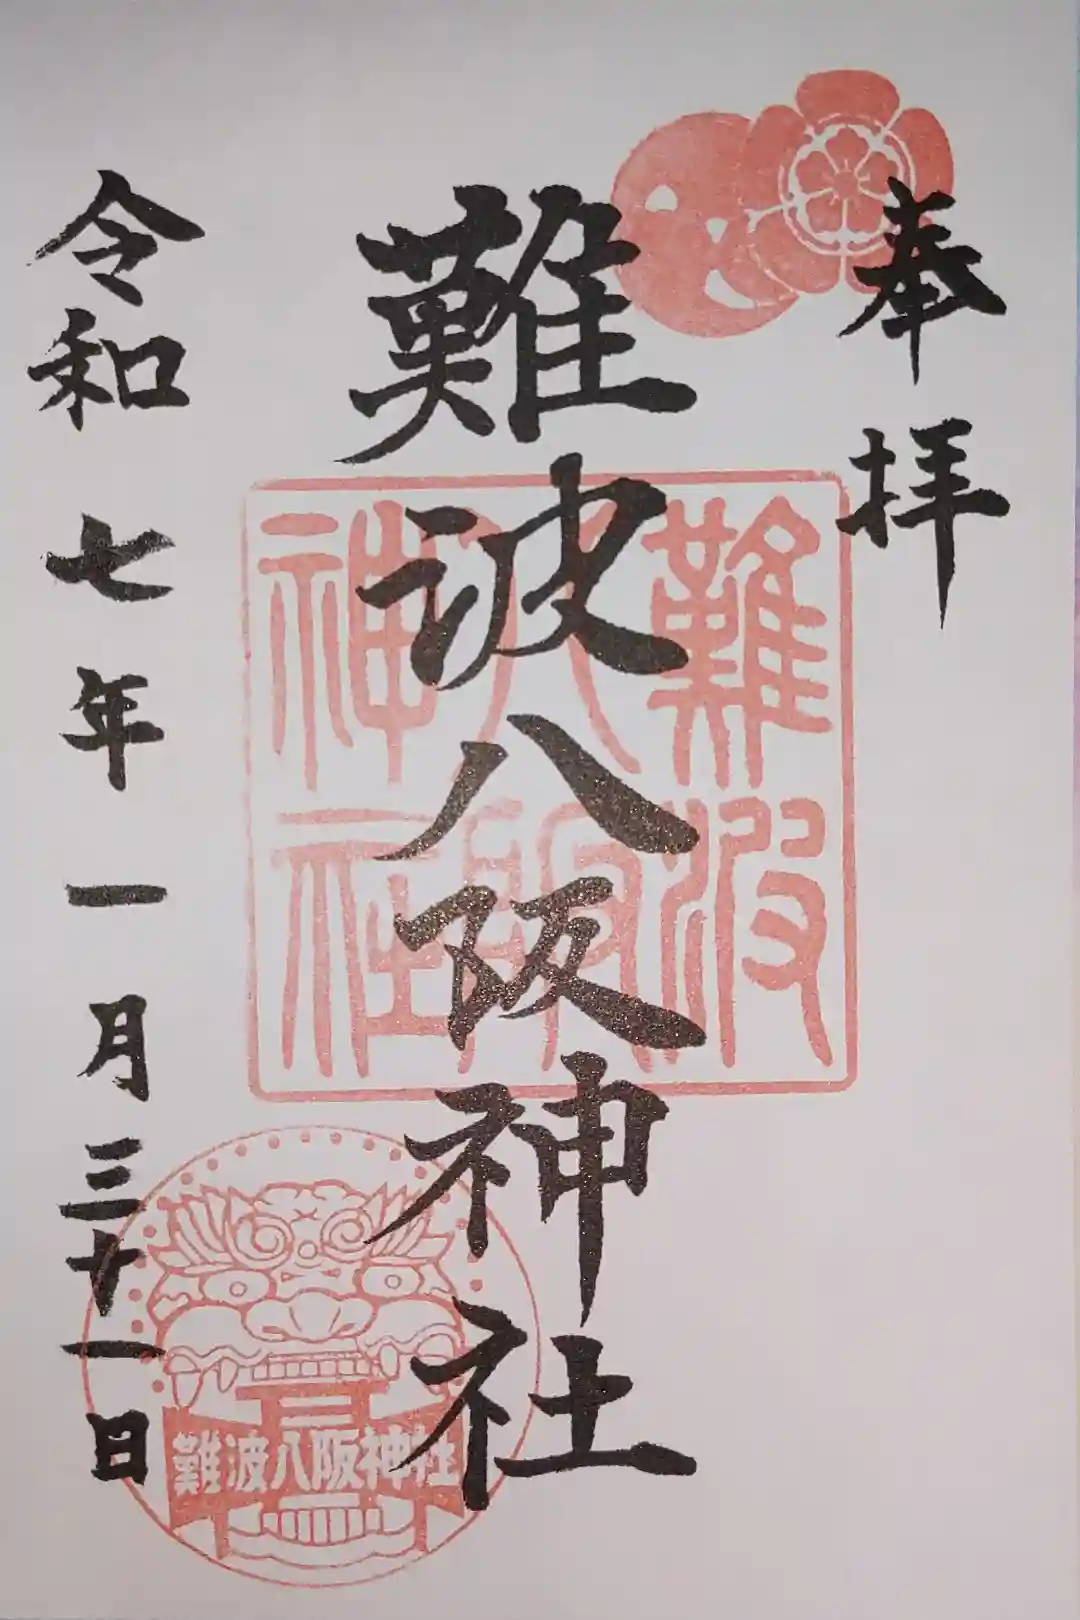 奉拝
難波八阪神社
難波
八阪
神社
令和七年一月三十一日
難波八阪神社